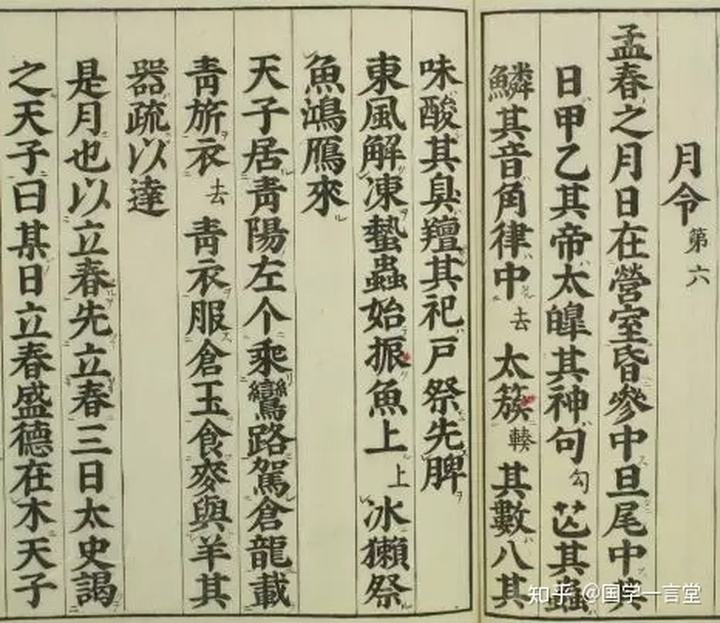 月令 第六
孟春之月日在營室昏參中旦尾中其
日甲乙其帝太皡其神句 勾 芒其蟲
鱗其音角律中 去 太簇 轃 其數八其
味酸其臭羶其祀戶祭先脾
東風解凍蟄蟲始振魚上 上 冰獺祭
魚鴻鴈來
天子居靑陽左个乘鸞路駕倉龍載
靑旂衣 去 靑衣服倉玉食麥與羊其
器疏以達
是月也以立春先立春三日太史謁
之天子曰某日立春盛德在木天子
知乎 @国学一言堂